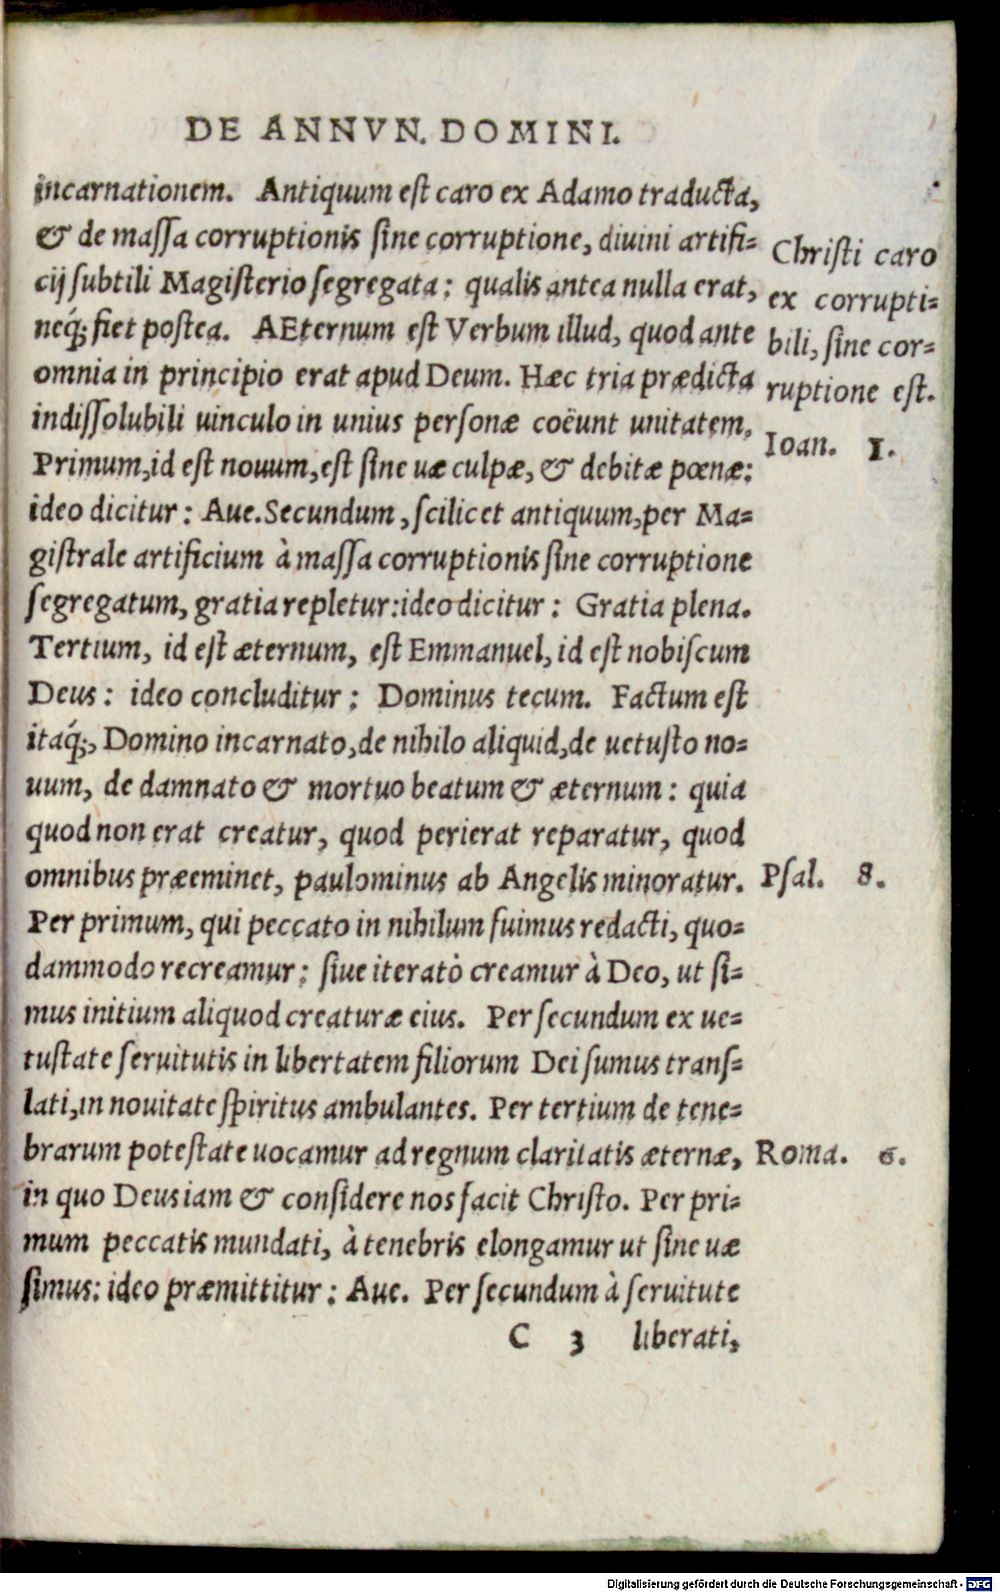 DE ANNVN. DOMINI.
incarnationem. Antiquum est caro ex Adamo traducta,
& de massa corruptionis sine corruptione, diuini artifi=
cij subtili Magisterio segregata: qualis antea nulla erat,
neq́; fiet postea. AEternum est Verbum illud, quod ante
omnia in principio erat apud Deum. Hæc tria prædicta
indissolubili uinculo in unius personæ coëunt unitatem.
Primum, id est nouum, est sine uæ culpæ, & debitæ pœnæ:
ideo dicitur: Aue. Secundum, scilicet antiquum, per Ma=
gistrale artificium à massa corruptionis sine corruptione
segregatum, gratia repletur: ideo dicitur: Gratia plena.
Tertium, id est æternum, est Emmanuel, id est nobiscum
Deus: ideo concluditur: Dominus tecum. Factum est
itaq́;, Domino incarnato, de nihilo aliquid, de uetusto no=
uum, de damnato & mortuo beatum & æternum: quia
quod non erat creatur, quod perierat reparatur, quod
omnibus præeminet, paulominus ab Angelis minoratur.
Per primum, qui peccato in nihilum fuimus redacti, quo=
dammodo recreamur: siue iteratò creamur à Deo, ut si=
mus initium aliquod creaturæ eius. Per secundum ex ue=
tustate seruitutis in libertatem filiorum Dei sumus trans=
lati, in nouitate spiritus ambulantes. Per tertium de tene=
brarum potestate uocamur ad regnum claritatis æternæ,
in quo Deus iam & considere nos facit Christo. Per pri=
mum peccatis mundati, à tenebris elongamur ut sine uæ
simus: ideo præmittitur: Aue. Per secundum à seruitute
C 3 liberati,
Christi caro
ex corrupti=
bili, sine cor=
ruptione est.
Ioan. 1.
Psal. 8.
Roma. 6.
Digitalisierung gefördert durch die Deutsche Forschungsgemeinschaft - DFG